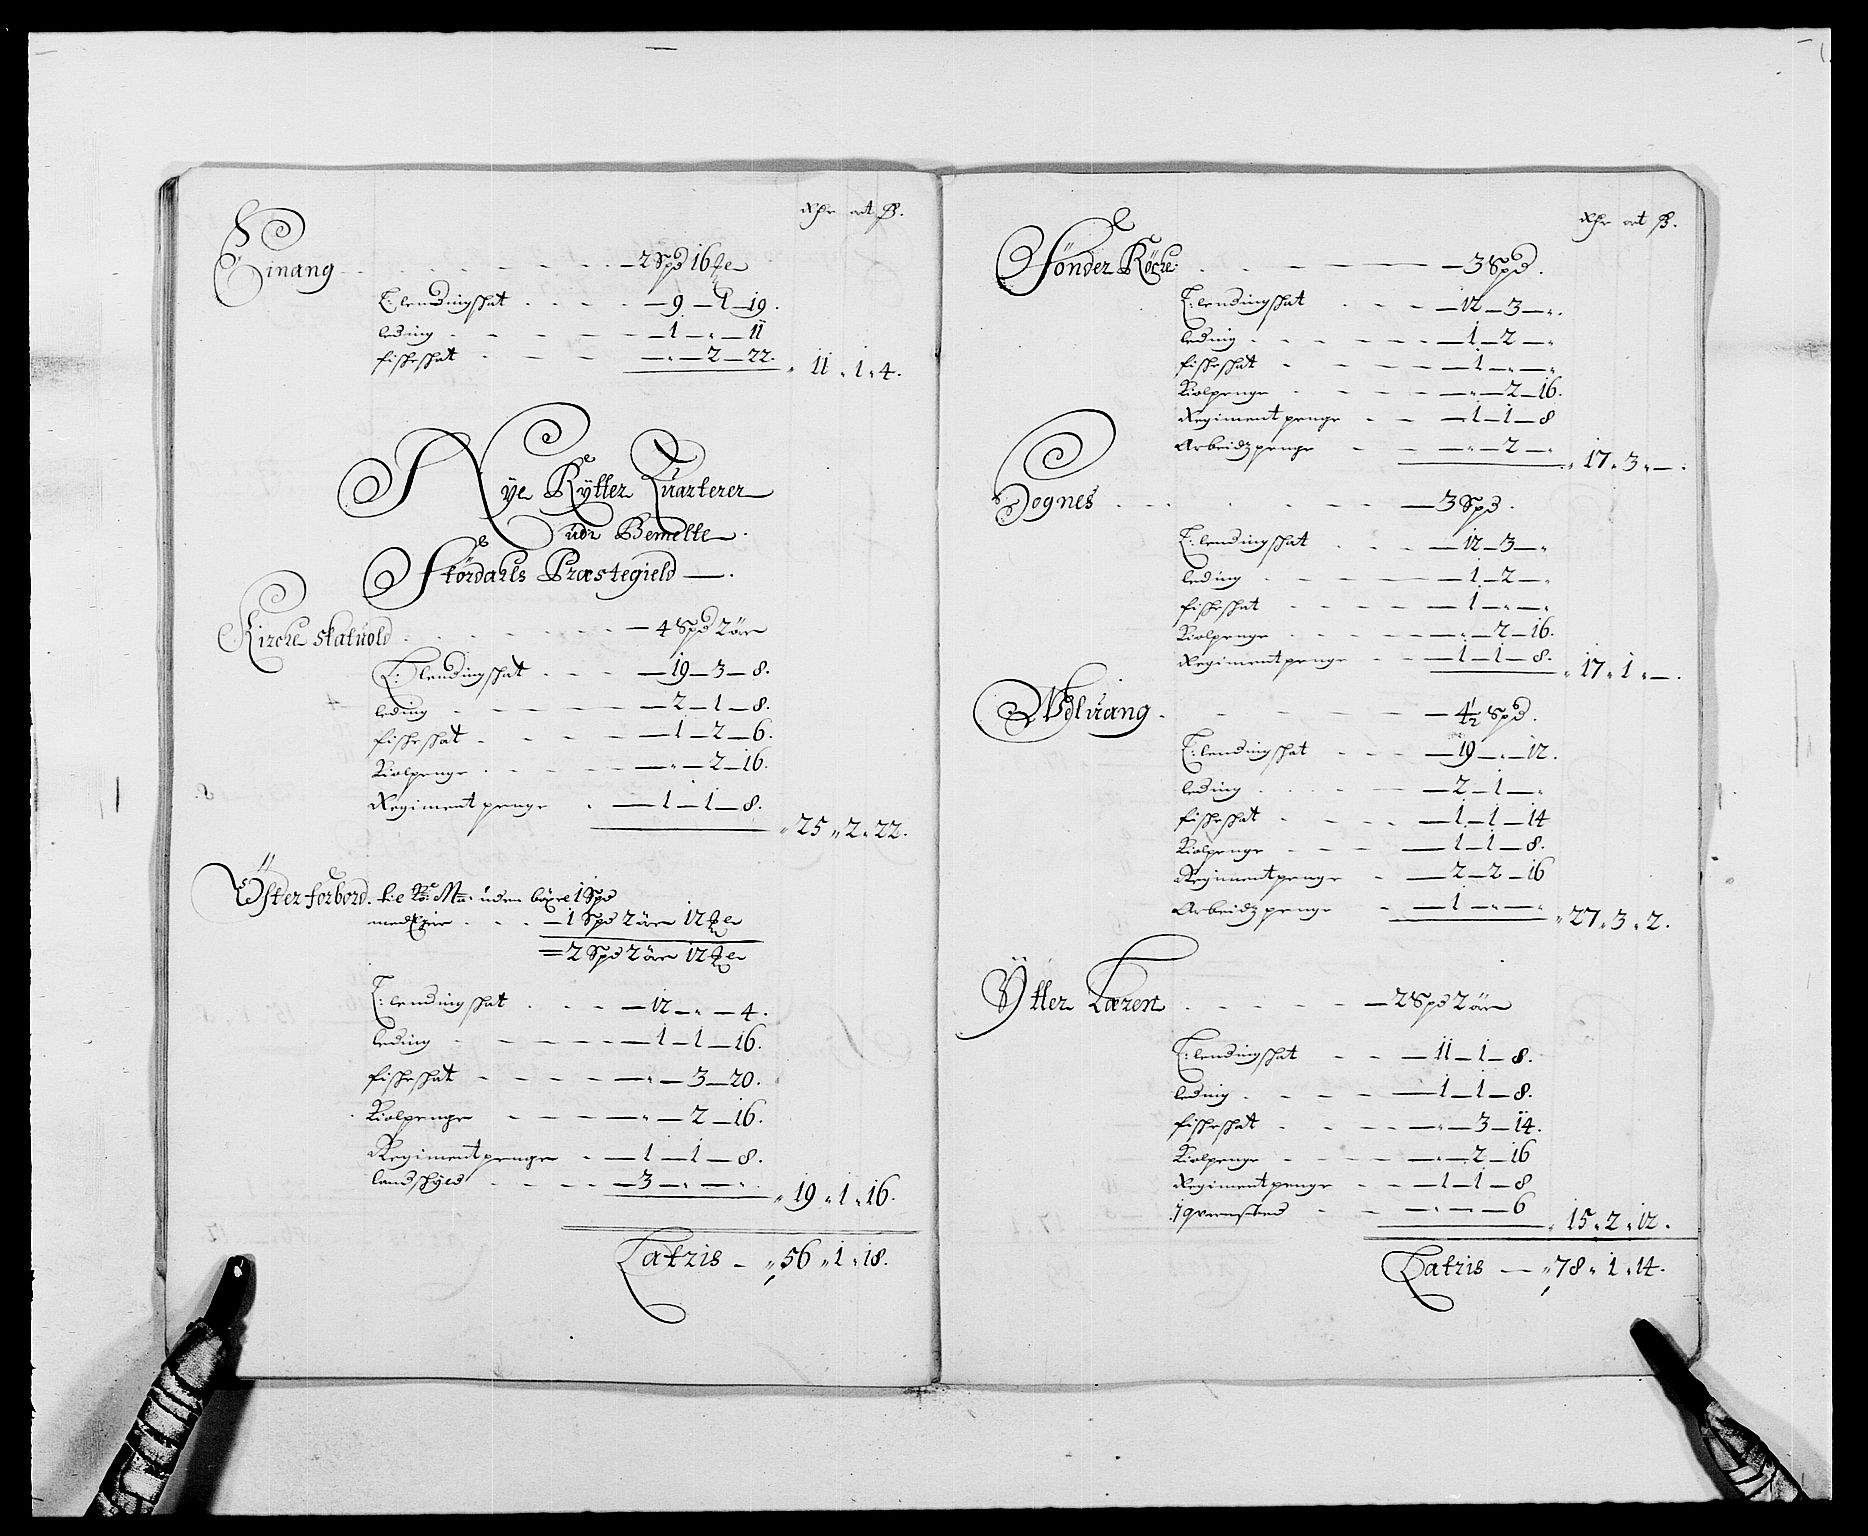 Rdr ort ß.
Einang - - - - - - 2 Spd 16 ʒe
T: lendingskat - - - 9 - 1 - 19.
leding - - - - 1 - " - 11
fiskeskat - - - " - 2 - 22. " 11 " 1 " 4.
Nÿe Rÿtter Quarterer
udi Bemelte
Stördahls Præstegield.
Kirche skatuold - - - - 4 Spd 2 öre
T: lendingskat - - - 19 - 3 - 8.
leding - - - - 2 - 1 - 8.
fiskeskat - - - - 1 - 2 - 6.
Kiolpenge - - - - " - 2 - 16.
Regimentpenge - 1 - 1 - 8. " 25 " 2 " 22.
Öster forbord. uden böxel 1 Spd
- - - 1 Spd 2 öre 12 ʒe
= 2 Spd 2 öre 12 ʒe
T: lendingskat - - - 12 - " - 4.
leding - - - - 1 - 1 - 16.
fiskeskat - - - - " - 3 - 20.
Kiolpenge - - - " - 2 - 16.
Regimentpenge - 1 - 1 - 8.
landskÿld - - - - 3 - " - " . " 19 " 1 " 16.
Latris - " 56 " 1 " 18.
Rdr ort ß.
Sönder Röche - - - - 3 Spd.
T: lendingskat - - - 12 - 3 - ".
leding - - - - 1 - 2 - "
fiskeskat - - - - 1 - " - "
Kiolpenge - - - - " - 2 - 16.
Regimentpenge - - 1 - 1 - 8
Arbeidzpenge - - " - 2 - " " 17 " 3 " - .
Sognes - - - - 3 Spd.
T: lendingskat - - - 12 - 3 - "
leding - - - - 1 - 2 - "
fiskeskat - - - - 1 - " - "
Kiolpenge - - - - " - 2 - 16.
Regimentpenge - - 1 - 1 - 8. " 17 " 1 " - .
Woluang - - - - 4½ Spd.
T: lendingskat - - - 19 - " - 12.
leding - - - - 2 - 1 - "
fiskeskat - - - - 1 - 1 - 14
Kiolpenge - - - 1 - 1 - 8.
Regimentpenge - 2 - 2 - 16
Arbeidzpenge - 1 - " - " " 27 " 3 " 2.
Ÿtter Læren - - - - 2 Spd 2 öre
T: lendingskat - - - 11 - 1 - 8.
leding - - - - 1 - 1 - 8.
fiskeskat - - - - " - 3 - 14.
Kiolpenge - - - - " - 2 - 16
Regimentpenge - - 1 - 1 - 8
1 qvernsted - - " - " - 6 " 15 " 2 " 12.
Latris - " 78 " 1 " 14.